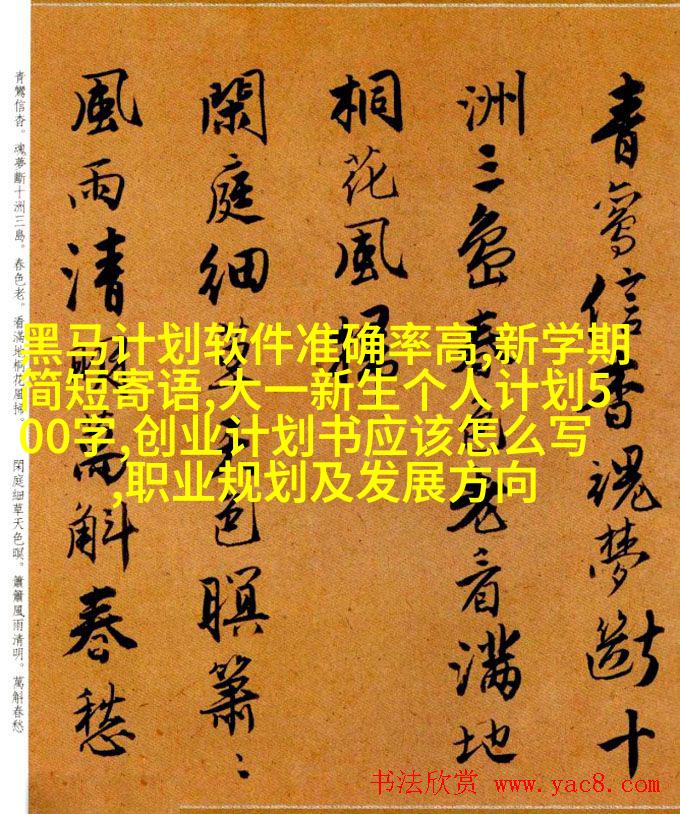 青鸞信杳魂夢斷十
洲三島春色老看滿地
桐花風掃
閑庭細草天色暝簫〻
風雨清明萬斛春愁
青鸞信杳。魂夢斷十洲三島。春色老。看滿地桐花風掃。 閑庭細草天色暝。簫簫風雨清明。萬斛春愁
黑马计划软件准确率高,新学期
简短寄语,大一新生个人计划5
00字,创业计划书应该怎么写
,职业规划及发展方向
书法欣赏 www.yac8.com